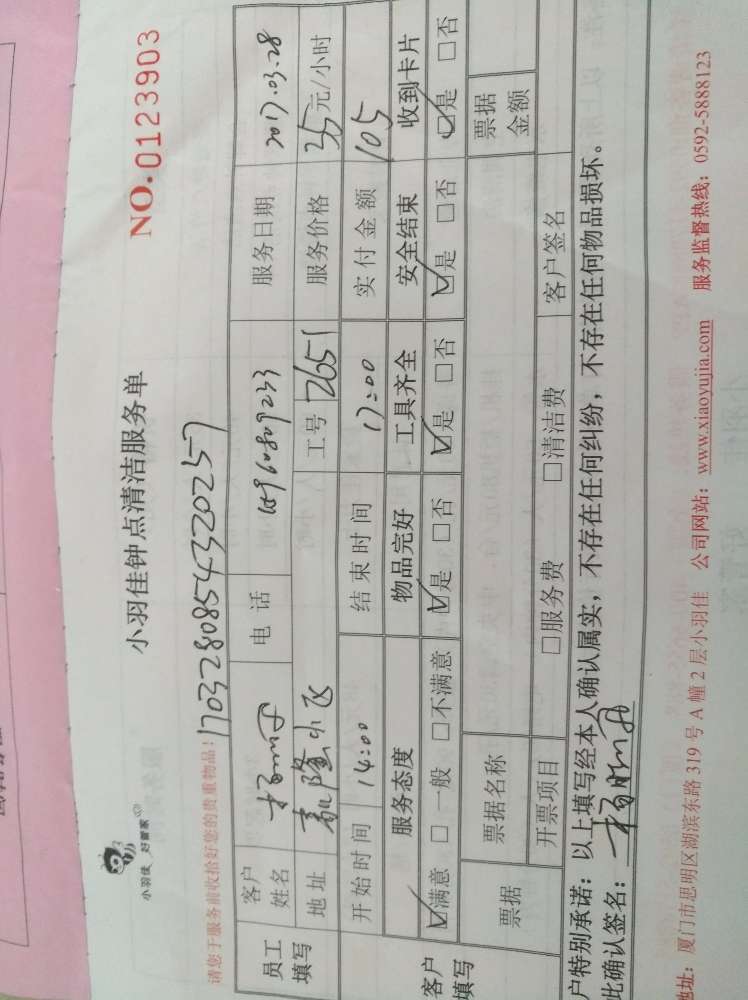 小羽佳 好管家
小羽佳钟点清洁服务单
NO.0123903
请您于服务前收拾好您的贵重物品!
1703280854320257
员工填写
客户姓名
电 话 15960809233
服务日期 2017.03.28
地址
工号 2651
服务价格 35元/小时
客户填写
开始时间 14:00
结束时间 17:00
实付金额 105
服务态度 物品完好 工具齐全 安全结束 收到卡片
☑满意 □一般 □不满意 ☑是 □否 ☑是 □否 ☑是 □否 ☑是 □否
票据 票据名称 票据金额
开票项目 □服务费 □清洁费 客户签名
户特别承诺：以上填写经本人确认属实，不存在任何纠纷，不存在任何物品损坏。
此确认签名：
地址：厦门市思明区湖滨东路 319 号 A 幢 2 层小羽佳 公司网站：www.xiaoyujia.com 服务监督热线：0592-5888123